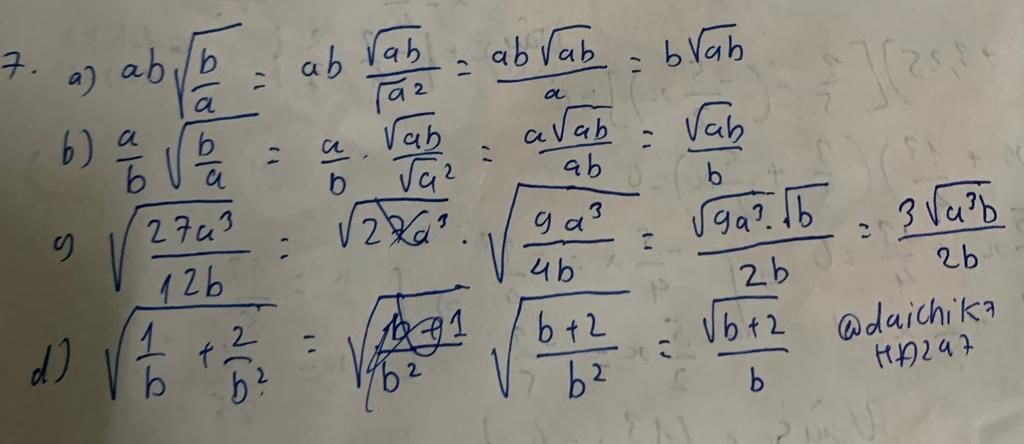 7. a) ab√(b/a) = ab √(ab)/√(a²) = ab√(ab)/a = b√(ab)
b) a/b √(b/a) = a/b · √(ab)/√(a²) = a√(ab)/ab = √(ab)/b
c) √(27a³/12b) = √(9a³/4b) = √(9a³)·√b/2b = 3√(a³b)/2b
d) √(1/b + 2/b²) = √((b+2)/b²) = √(b+2)/b
@daichik7